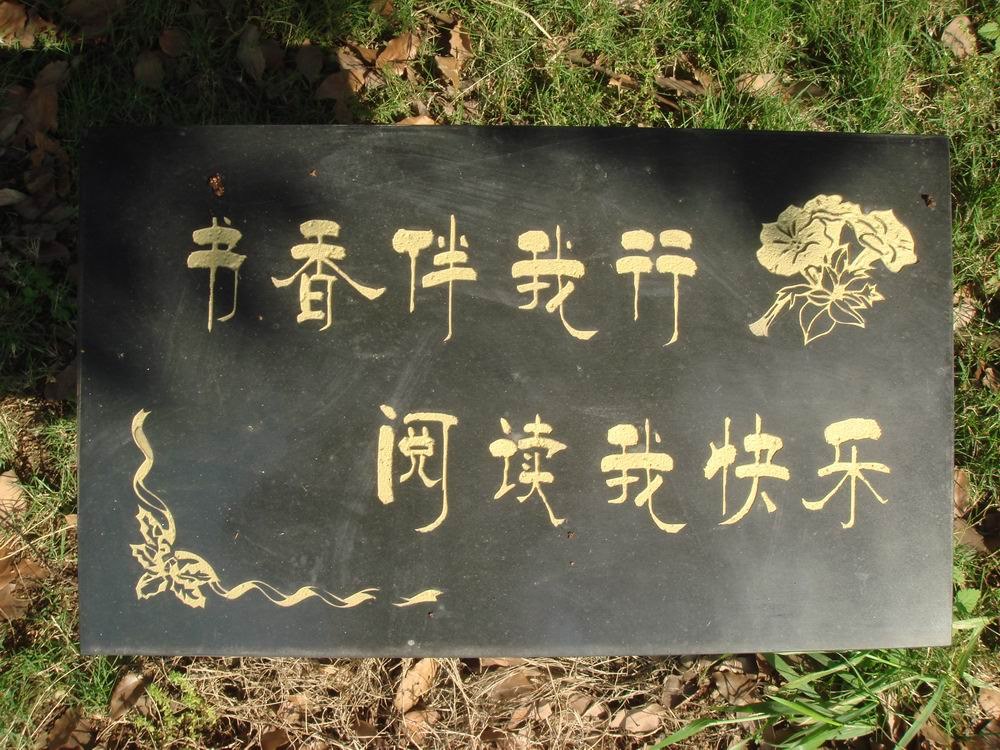 书香伴我行
阅读我快乐